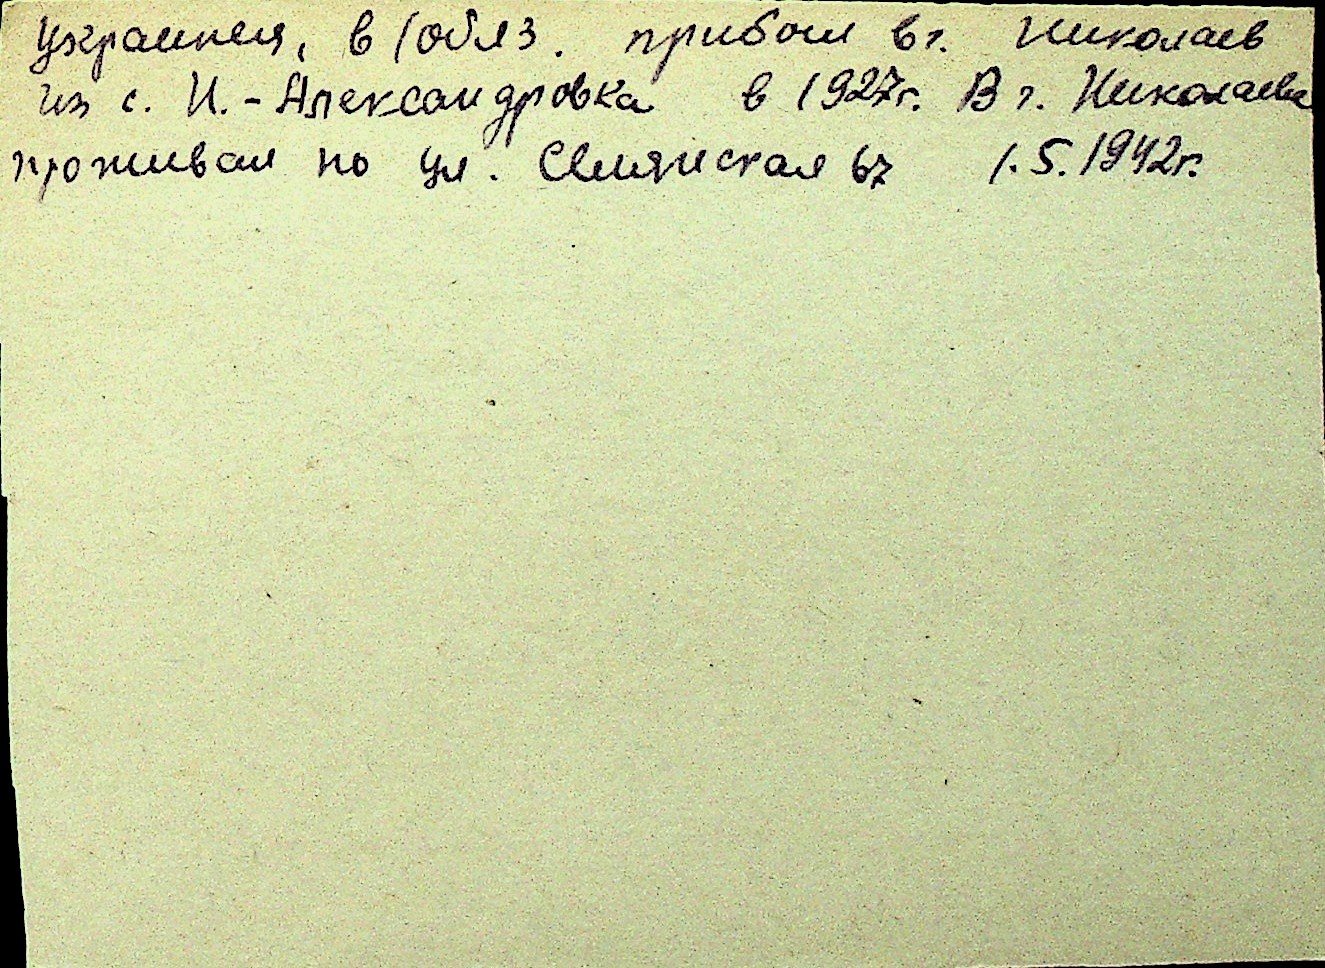 украинец, в/обяз. прибыл в г. Николаев
из с. Н.-Александровка в 1927г. В г. Николаеве
проживал по ул. 67 1.5.1942г.